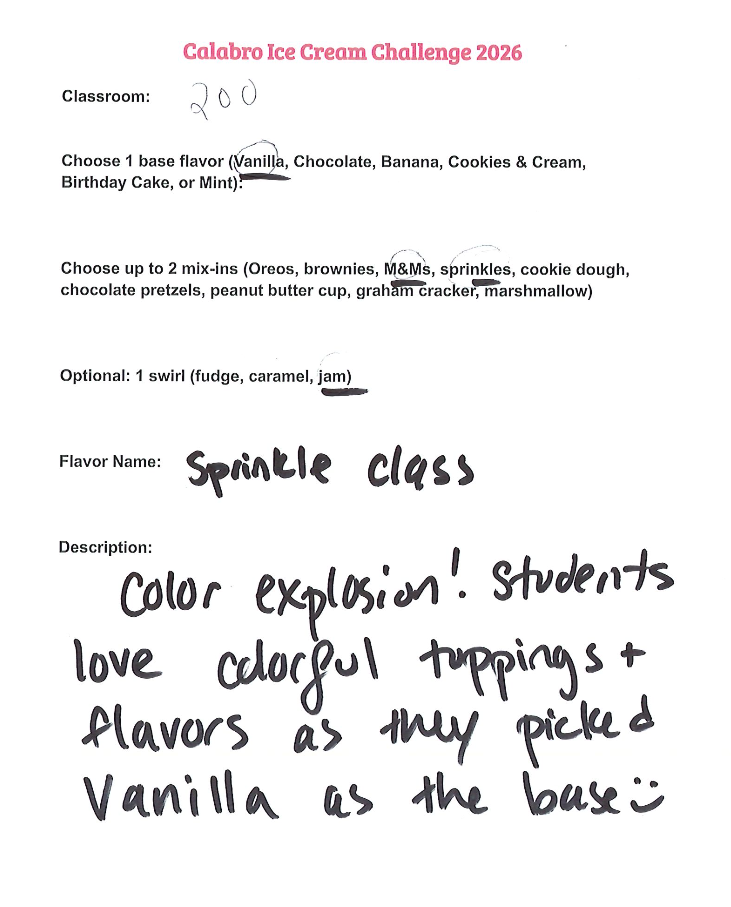 Calabro Ice Cream Challenge 2026
Classroom: 200
Choose 1 base flavor (Vanilla, Chocolate, Banana, Cookies & Cream,
Birthday Cake, or Mint):
Choose up to 2 mix-ins (Oreos, brownies, M&Ms, sprinkles, cookie dough,
chocolate pretzels, peanut butter cup, graham cracker, marshmallow)
Optional: 1 swirl (fudge, caramel, jam)
Flavor Name: Sprinkle class
Description:
Color explosion! Students
love colorful toppings +
flavors as they picked
Vanilla as the base :)